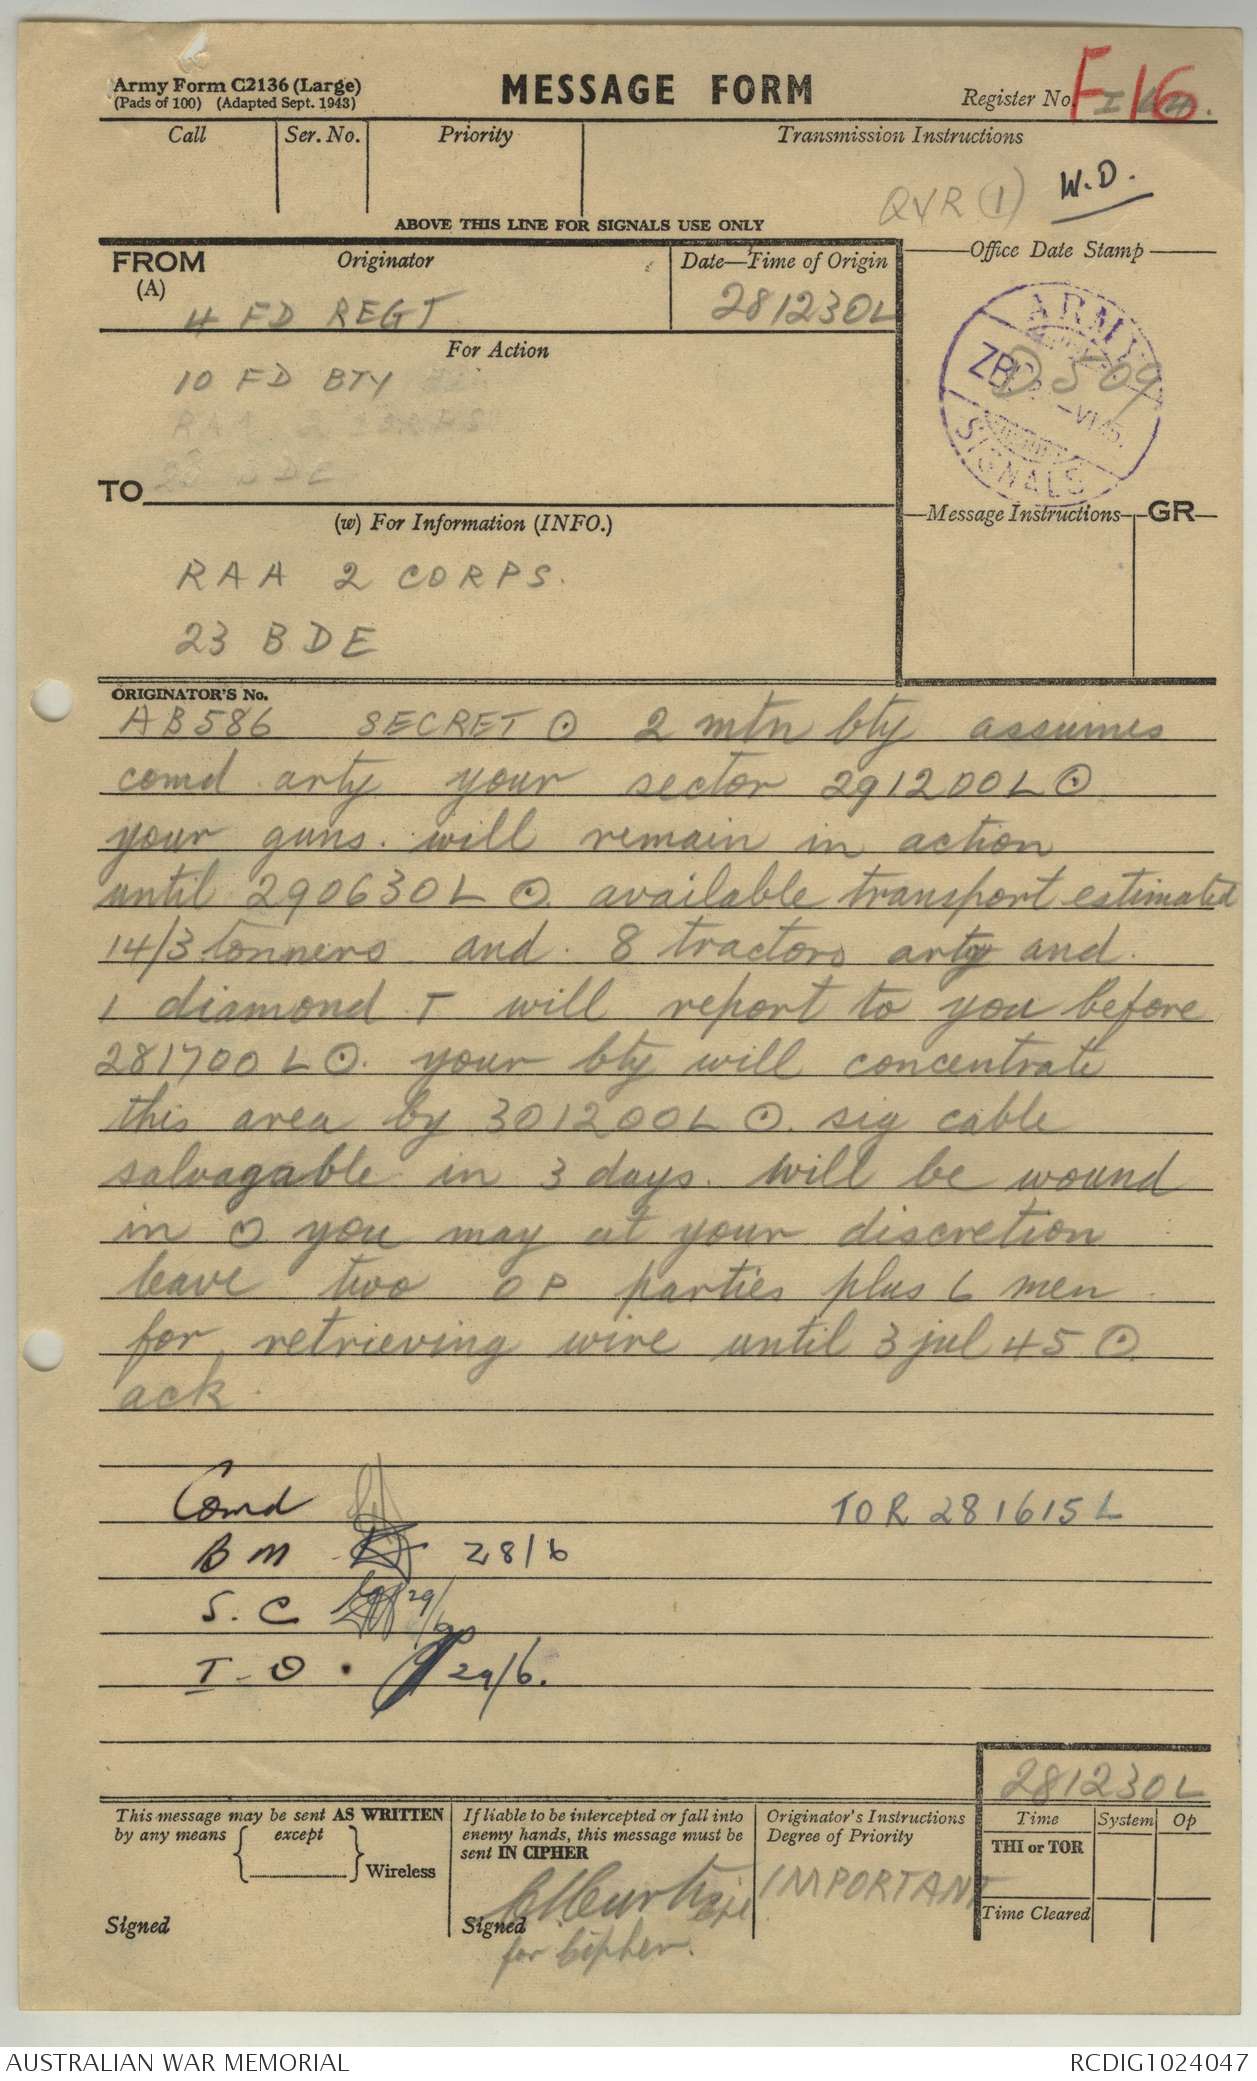 Army Form C2136 (Large)
(Pads of 100) (Adapted Sept. 1943)
MESSAGE FORM
Register No.
F16
Call
Ser. No.
Priority
Transmission Instructions
QVR (1)
W.D.
ABOVE THIS LINE FOR SIGNALS USE ONLY
FROM
(A)
Originator
4 FD REGT
Date—Time of Origin
281230L
Office Date Stamp
ARMY
SIGNALS
D509
For Action
10 FD BTY
TO
(w) For Information (INFO.)
RAA 2 CORPS.
23 BDE
Message Instructions
GR
ORIGINATOR'S No.
AB586 SECRET ⊙ 2 mtn bty assumes
comd arty your sector 291200L ⊙
your guns. will remain in action
until 290630L ⊙ available transport estimated
14/3 tonners and. 8 tractors arty and.
1 diamond T will report to you before
281700L ⊙. your bty will concentrate
this area by 301200L ⊙. sig cable
salvagable in 3 days. will be wound
in ⊙ you may at your discretion
leave two OP parties plus 6 men
for retrieving wire until 3 jul 45 ⊙
ack.
Comd
TOR 281615L
BM 28/6
S.C 29/6
I-O. 29/6.
281230L
This message may be sent AS WRITTEN
by any means { except } Wireless
Signed
If liable to be intercepted or fall into
enemy hands, this message must be
sent IN CIPHER
Signed
for Cipher.
Originator's Instructions
Degree of Priority
IMPORTANT
Time
System
Op
THI or TOR
Time Cleared
AUSTRALIAN WAR MEMORIAL
RCDIG1024047